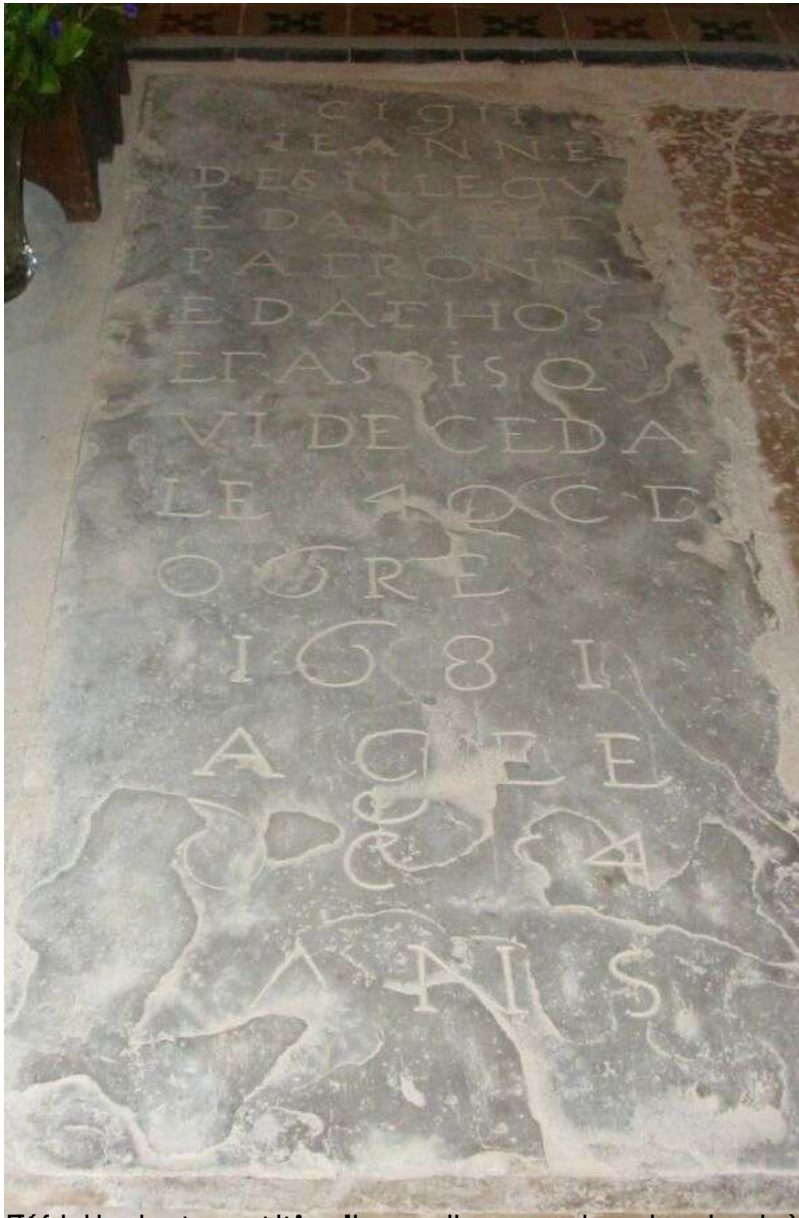 CI GIT
IEANNE
DESILLEGV
E DAME ET
PATRONN
E DATHOS
ET ASPISQ
VI DECEDA
LE 4 DCE
O6RE
1681
AGEE
54
ANS